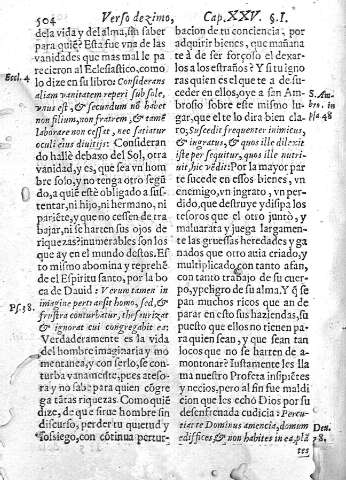 504
Verso dezimo,
Cap. XXV. §. I.
dela vida y del alma, sin saber
para quiẽ? Esta fue vna de las
vanidades que mas mal le pa
recieron al Eclesiastico, como
Eccl. 4
lo dize en su libro: Considerans
aliam vanitatem reperi sub sole,
vnus est, & secundum nõ habet
non filium, non fratrem, & tamẽ
laborare non cessat, nec satiatur
oculi eius diuitijs: Consideran
do hallè debaxo del Sol, otra
vanidad, y es, que sea vn hom
bre solo, y no tenga otro segũ
do, a quiẽ estè obligado a sus-
tentar, ni hijo, ni hermano, ni
pariẽte, y que no cessen de tra
bajar, ni se harten sus ojos de
riquezas? inumerables son los
que ay en el mundo destos. Es
to mismo abomina y reprehẽ
de el Espiritu santo, por la bo
ca de Dauid: Verum tamen in
Ps. 38.
imagine pertransit homo, sed, &
frustra conturbatur, thesaurizat
& ignorat cui congregabit ea:
Verdaderamente es la vida
del hombre imaginaria y mo
mentanea, y con serlo, se con-
turba vanamente, pues ateso-
ra y no sabe para quien cõgre
ga tãtas riquezas. Como quiẽ
dize, de que sirue hombre sin
discurso, perder tu quietud y
sossiego, con cõtinua pertur-
bacion de tu conciencia, por
adquirir bienes, que mañana
te à de ser forçoso el dexar-
los a los estraños? Y si tu igno
ras quien es el que te a de su-
ceder en ellos, oye a san Am-
S. Am-
brosio sobre este mismo lu-
bro. in
gar, que el te lo dira bien cla-
ps 48
ro; Suscedit frequenter inimicus,
& ingratus, & quos ille dilexit
iste persequitur, quos ille nutri-
uit, hic vêdit: Por la mayor par
te sucede en essos bienes, vn
enemigo, vn ingrato, vn perdi-
dor, que destruye y disipa los
tesoros que el otro juntò, y
malbarata y juega largamen-
te las gruessas heredades y ga
nados que otro auia criado, y
multiplicado con tanto afan,
con tanto trabajo de su cuer-
po, y peligro de su alma. Y q̃ se
pan muchos ricos que an de
parar en esto sus haziendas, su
puesto que ellos no tienen pa-
ra quien sean, y que sean tan
locos que no se harten de a-
montonar? Iustamente les lla
ma nuestro Profeta insipiẽtes
y necios, pero al fin fue maldi
cion que les echò Dios por su
desenfrenada cudicia: Percu-
tiat te Dominus amencia, domum
Deu.
ædifices, & non habites in ea, plã
28.
tes